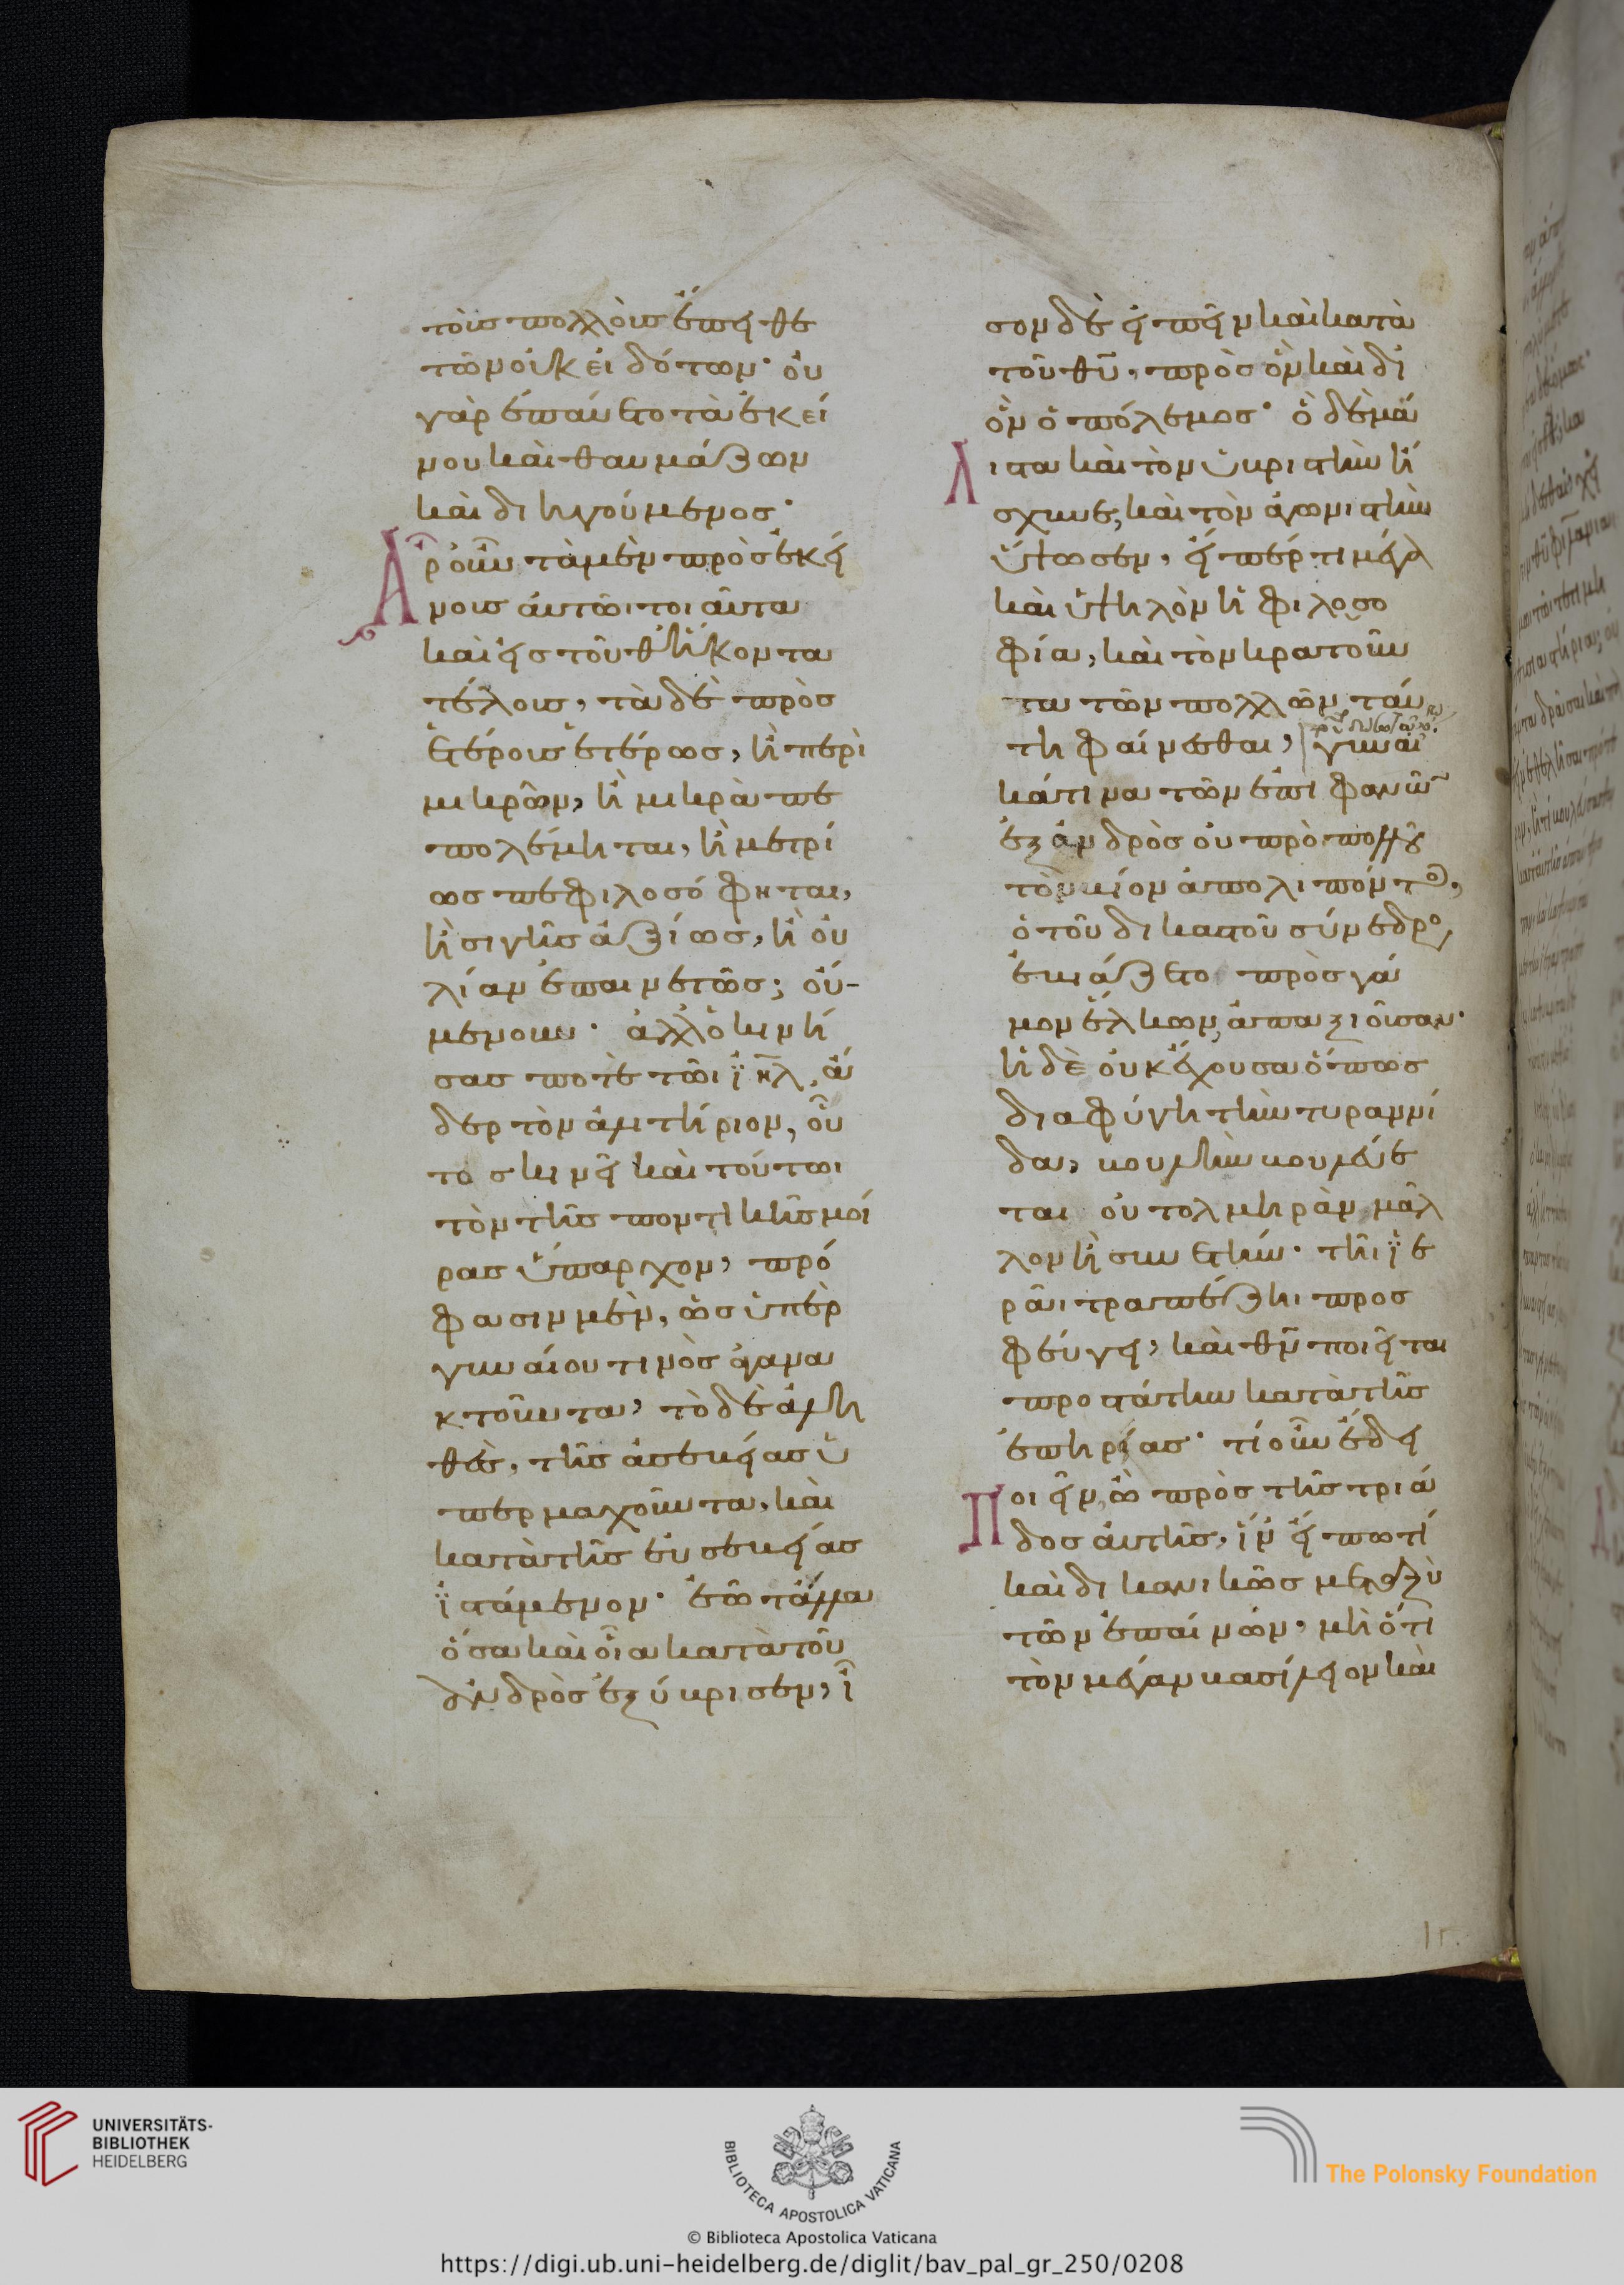 τοῖς πολλοῖς ἔπειθε
τῶν οὐκ εἰδότων· οὐ
γὰρ ἐπαύετο τὰ ἐκεί
νου καὶ θαυμάζων
καὶ διηγούμενος·
Ἆρ οὖν τὰ μὲν πρὸς ἐκεί
νους αὐτῶι τοιαῦτα
καὶ εἰς τοῦθ ἥκοντα
τέλους, τὰ δὲ πρὸς
ἑτέρους ἑτέρως, ἢ περὶ
μικρῶν, ἢ μικρὰ πε
πολέμηται, ἢ μετρί
ως πεφιλοσόφηται,
ἢ σιγῆς ἀξίως, ἢ οὐ
λίαν ἐπαινετῶς; οὔ-
μενουν· ἀλλ ὁ κινή
σας ποτὲ τῶι ϊηλ, ἄ
δερ τὸν ἀλιτήριον, οὗ
τος κινεῖ καὶ τούτωι
τὸν τῆς ποντικῆς μοί
ρας ὕπαρχον, πρό
φασιν μὲν, ὡς ὑπὲρ
γυναίου τινὸς ἀγανα
κτοῦντα, τὸ δὲ ἀλη
θὲς, τῆς ἀσεβείας ὑ
περμαχοῦντα, καὶ
κατὰ τῆς εὐσεβείας
ἱστάμενον· ἐῶ τἄλλα
ὅσα καὶ οἷα κατὰ τοῦ
ἀνδρὸς ἐξύβρισεν, ἶ
σον δὲ εἰπεῖν καὶ κατὰ
τοῦ θυ, πρὸς ὃν καὶ δι
ὃν ὁ πόλεμος· ὃ δὲ μά
Λιστα καὶ τὸν ὑβριστὴν ἤ
σχυνε, καὶ τὸν ἀγωνιστὴν
ὕψωσεν, εἴπερ τι μέγα
καὶ ὑψηλὸν ἡ φιλοσο
φία, καὶ τὸν κρατοῦν
τα τῶν πολλῶν ταύ
τη φαίνεσθαι, γυναῖ
κά τινα τῶν ἐπιφανῶν
ἐξ ἀνδρὸς οὐ πρὸ πολλοῦ
τὸν βίον ἀπολιπόντος,
ὁ τοῦ δικαστοῦ σύνεδρος
ἐβιάζετο πρὸς γά
μον ἕλκων, ἀπαξιοῦσαν·
ἡ δὲ οὐκ ἔχουσα ὅπως
διαφύγη τὴν τυραννί
δα, βουλὴν βουλεύε
ται οὐ τολμηρὰν μᾶλ
λον ἢ συνετήν· τῆι ϊε
ρᾶι τραπέζηι προσ
φεύγει, καὶ θν ποιεῖται
προστάτην κατὰ τῆς
ἐπηρείας· τί οὖν ἔδει
Ποιεῖν, ὢ πρὸς τῆς τριά
δος αὐτῆς, ἵν εἴπω τί
καὶ δικανικῶς μεταξὺ
τῶν ἐπαίνων, μὴ ὅτι
τὸν μέγαν βασίλειον καὶ
UNIVERSITÄTS-
BIBLIOTHEK
HEIDELBERG
BIBLIOTECA APOSTOLICA VATICANA
© Biblioteca Apostolica Vaticana
The Polonsky Foundation
https://digi.ub.uni-heidelberg.de/diglit/bav_pal_gr_250/0208